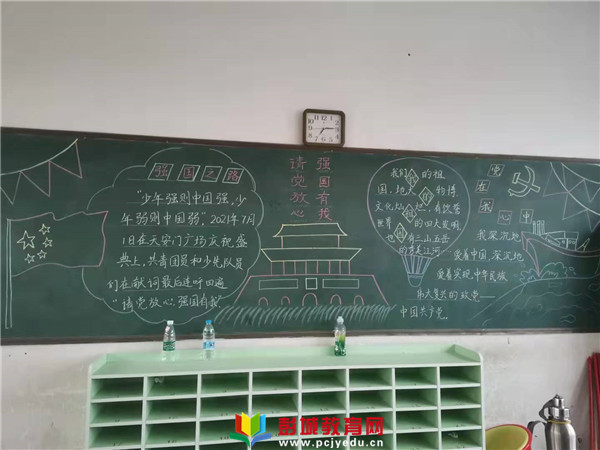 强国之路
“少年强则中国强，少
年弱则中国弱”2021年7月
1日在天安门广场庆祝盛
典上，共青团员和少先队员
们在献词最后连呼四遍
“请党放心，强国有我”
强国有我
请党放心
我们的祖
国，地
物博
文化
的四大发明
有三山五岳
中国共产党
党
在
我
心中
我深沉地
爱着中国，深沉地
爱着实现中华民族
伟大复兴的政党——
彭城教育网
www.pcjyedu.cn